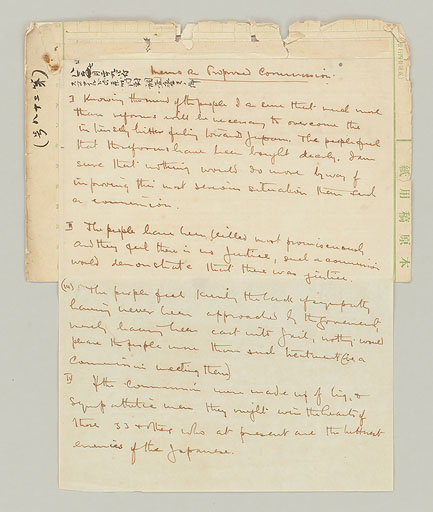 Memo on Proposed Commission.
I Knowing the mind of the people I am sure that much more
than reforms will be necessary to overcome the
intensely bitter feeling toward Japan. The people feel
that the reforms have been bought dearly. I am
sure that nothing would do more by way of
improving this most serious situation than such
a commission.
II The people have been killed most promiscuously
and they feel there is no justice, such a commission
would demonstrate that there was justice.
(III) The people feel keenly the lack of sympathy
having never been approached by the Government,
merely having been cast into jail, nothing would
please the people more than such treatment (as a
Commission meeting them)
IV If the Commission were made up of big, &
sympathetic men they might win the hearts of
those 33 & others who at present are the bitterest
enemies of the Japanese.
(第八十三号)
本原稿用紙